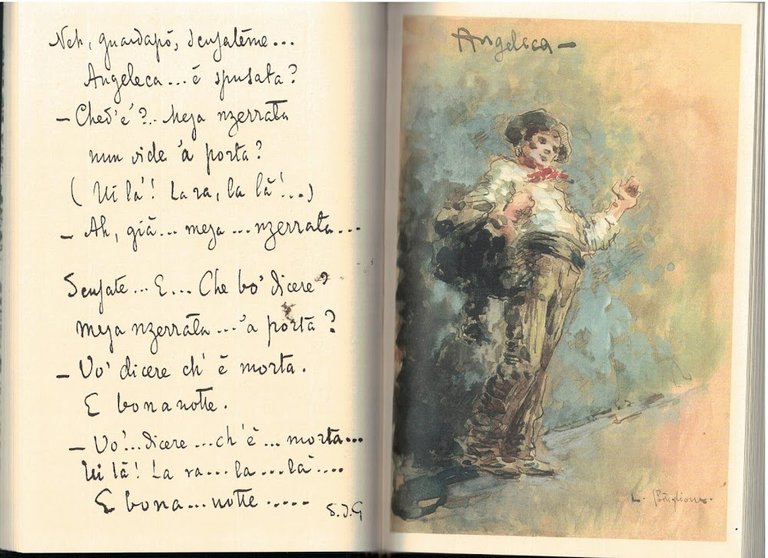 Neh, guardapò, scusateme...
Angeleca... è spusata?
– Ched'è?.. Meja nzerrata
nun vide 'a porta?
( Ui là! La ra, la là!...)
– Ah, già... meja... nzerrata...
Scusate... E... Che bo' dicere?
meja nzerrata... 'a porta?
– Vo' dicere ch' è morta.
E bona notte.
– Vo'...dicere...ch'è... morta...
Ui là! La ra... la... là....
E bona... notte.....
S.D.G
Angeleca –